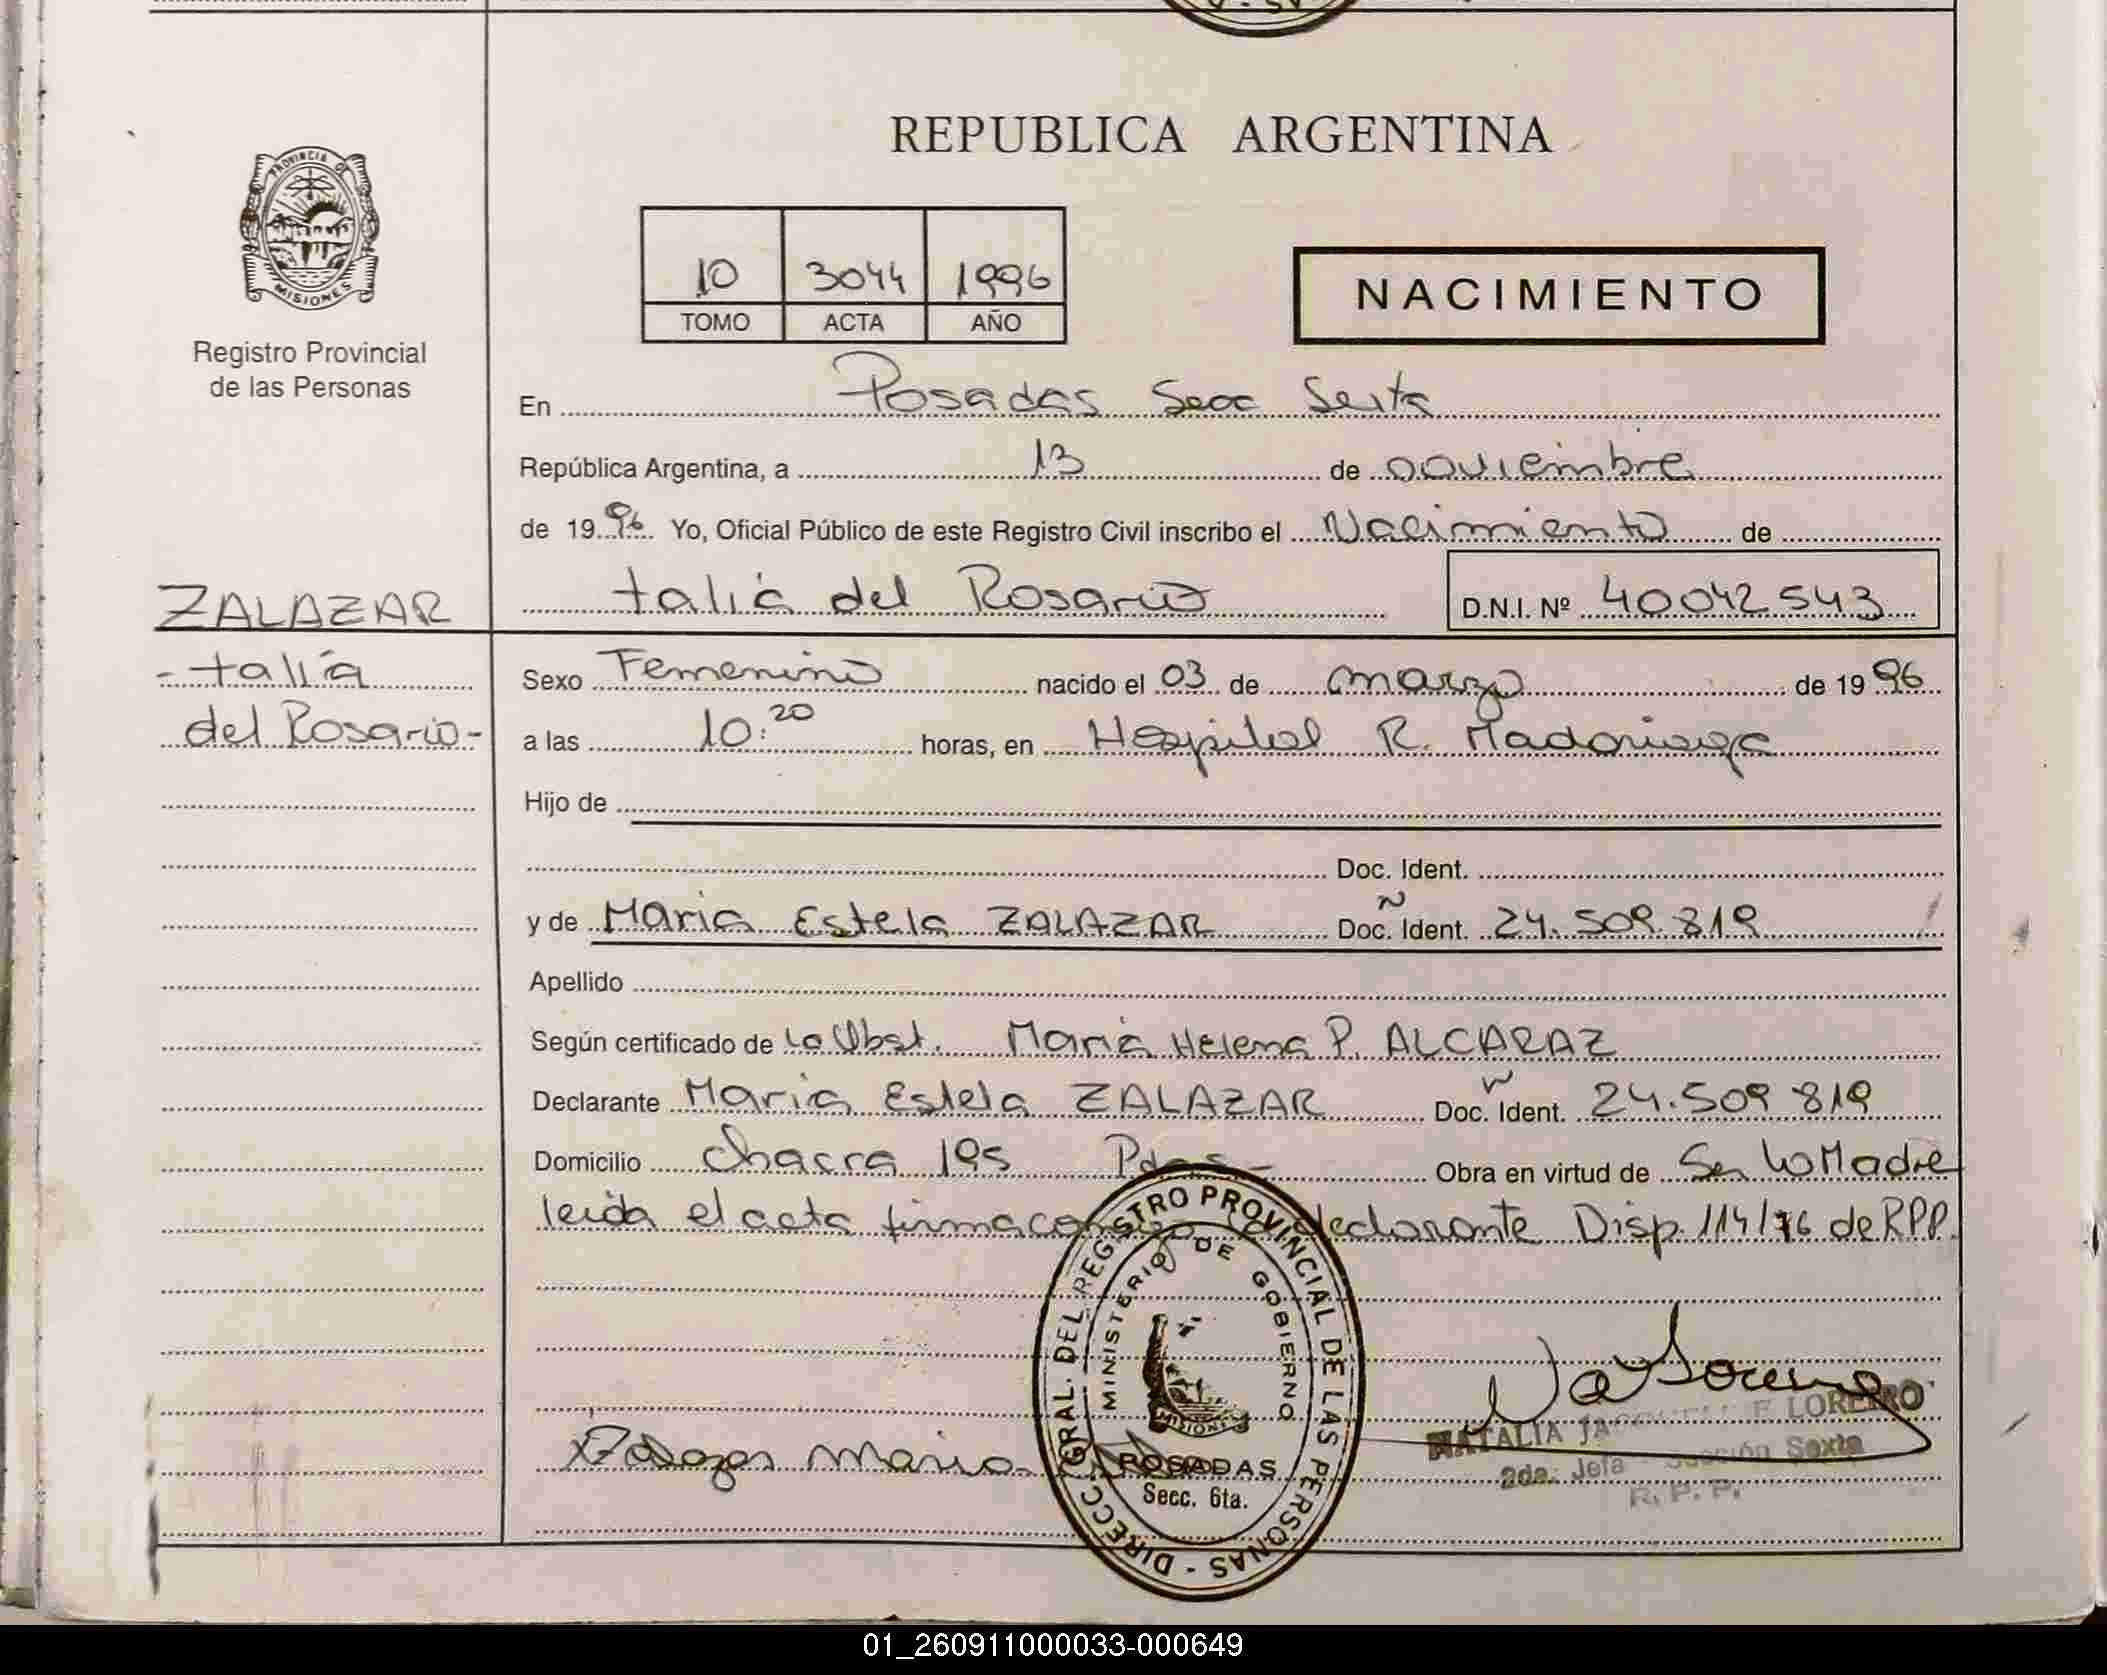 REPUBLICA ARGENTINA
PROVINCIA DE
MISIONES
Registro Provincial
de las Personas
10 3044 1996
TOMO ACTA AÑO
NACIMIENTO
En Posadas Secc Sexta
República Argentina, a 13 de noviembre
de 1996 Yo, Oficial Público de este Registro Civil inscribo el Nacimiento de
talía del Rosario D.N.I. Nº 40042543
ZALAZAR
- talía
del Rosario -
Sexo Femenino nacido el 03 de marzo de 1996
a las 10:20 horas, en Hospital R. Madariaga
Hijo de
Doc. Ident.
y de Maria Estela ZALAZAR Doc. Ident. 24.509.819
Apellido
Según certificado de la Obst. Maria Helena P. ALCARAZ
Declarante Maria Estela ZALAZAR Doc. Ident. 24.509 819
Domicilio Chacra 195 Pdas - Obra en virtud de Ser la Madre
leida el acta firma conmigo la declarante Disp. 114/76 de RPP.
DIRECC. GRAL. DEL REGISTRO PROVINCIAL DE LAS PERSONAS -
MINISTERIO DE GOBIERNO
MISIONES
POSADAS
Secc. 6ta.
Zalazar Maria
NATALIA JACQUELINE LOREIRO
2da. Jefa - Sección Sexta
R. P. P.
01_260911000033-000649